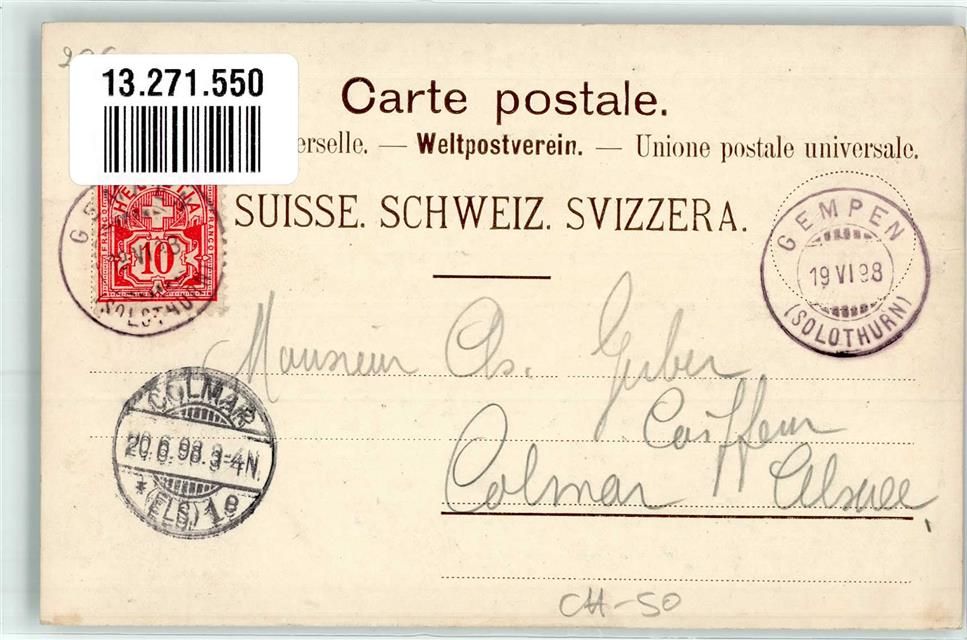 13.271.550
Carte postale.
erselle. — Weltpostverein. — Unione postale universale.
SUISSE. SCHWEIZ. SVIZZERA.
HELVETIA
FRANCO
FRANCO
10
G
(SOLOTHURN)
GEMPEN
19 VI 98
(SOLOTHURN)
Monsieur Chs. Gerber
Coiffeur
Colmar Alsace
COLMAR
20.6.98.3-4N.
* (ELS.) 1 g
CH-SO